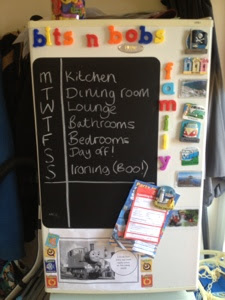 bits n bobs
family
M Kitchen
T Dining room
W Lounge
T Bathrooms
F Bedrooms
S Day off!
S Ironing (Boo!)